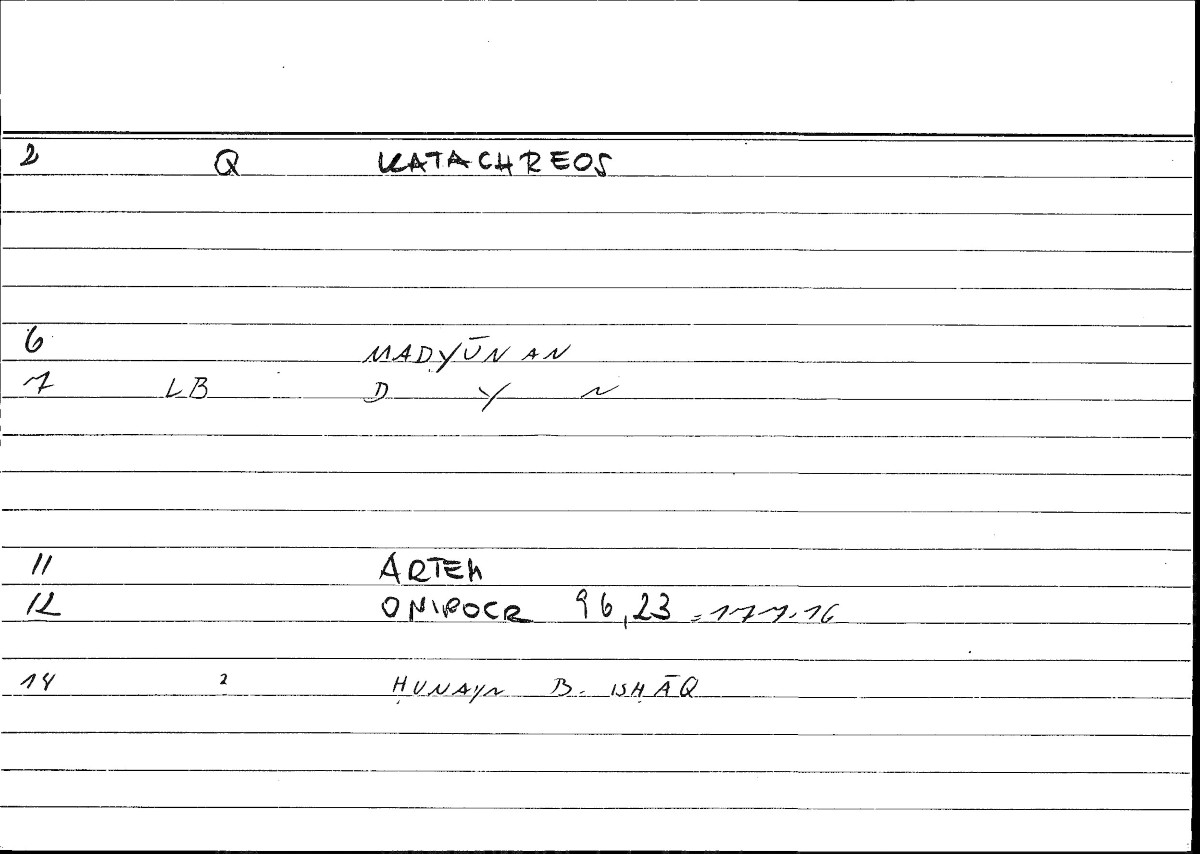 2 Q KATACHREOS
6 MADYŪNAN
7 LB D Y N
11 ARTEM
12 ONIROCR 96,23 = 177.16
14 2 ḤUNAYN B. ISḤĀQ